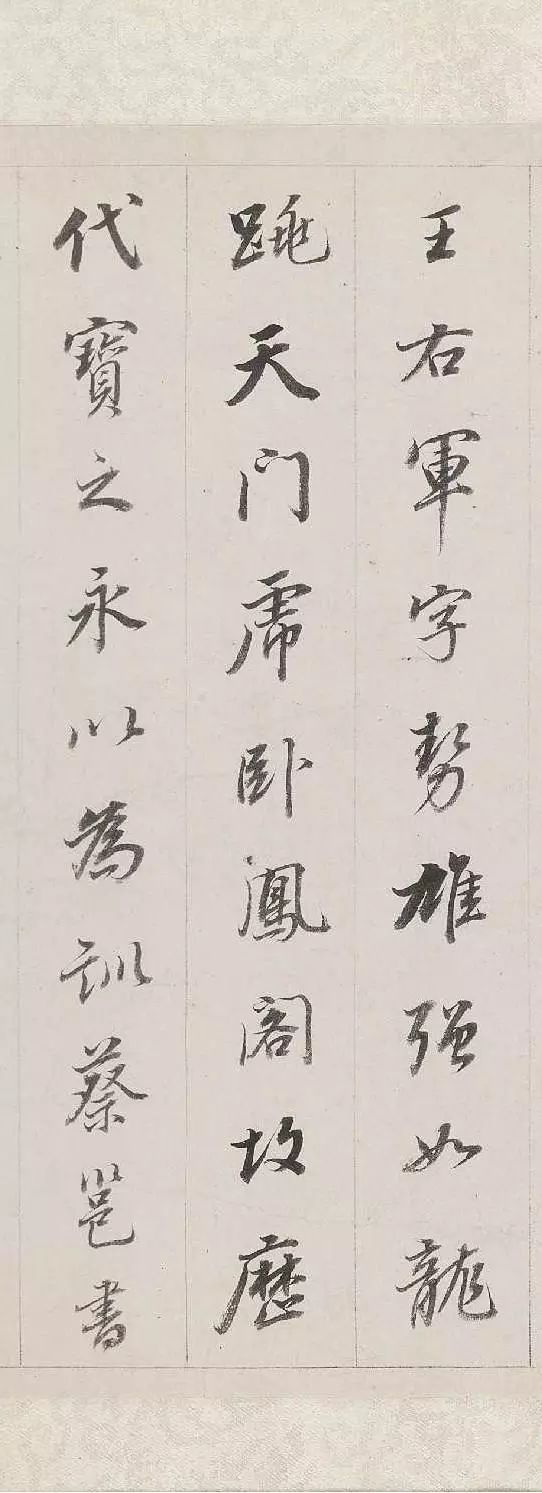 王右軍字勢雄强如龍
跳天门虎卧鳳閣故歷
代寶之永以為訓蔡邕書